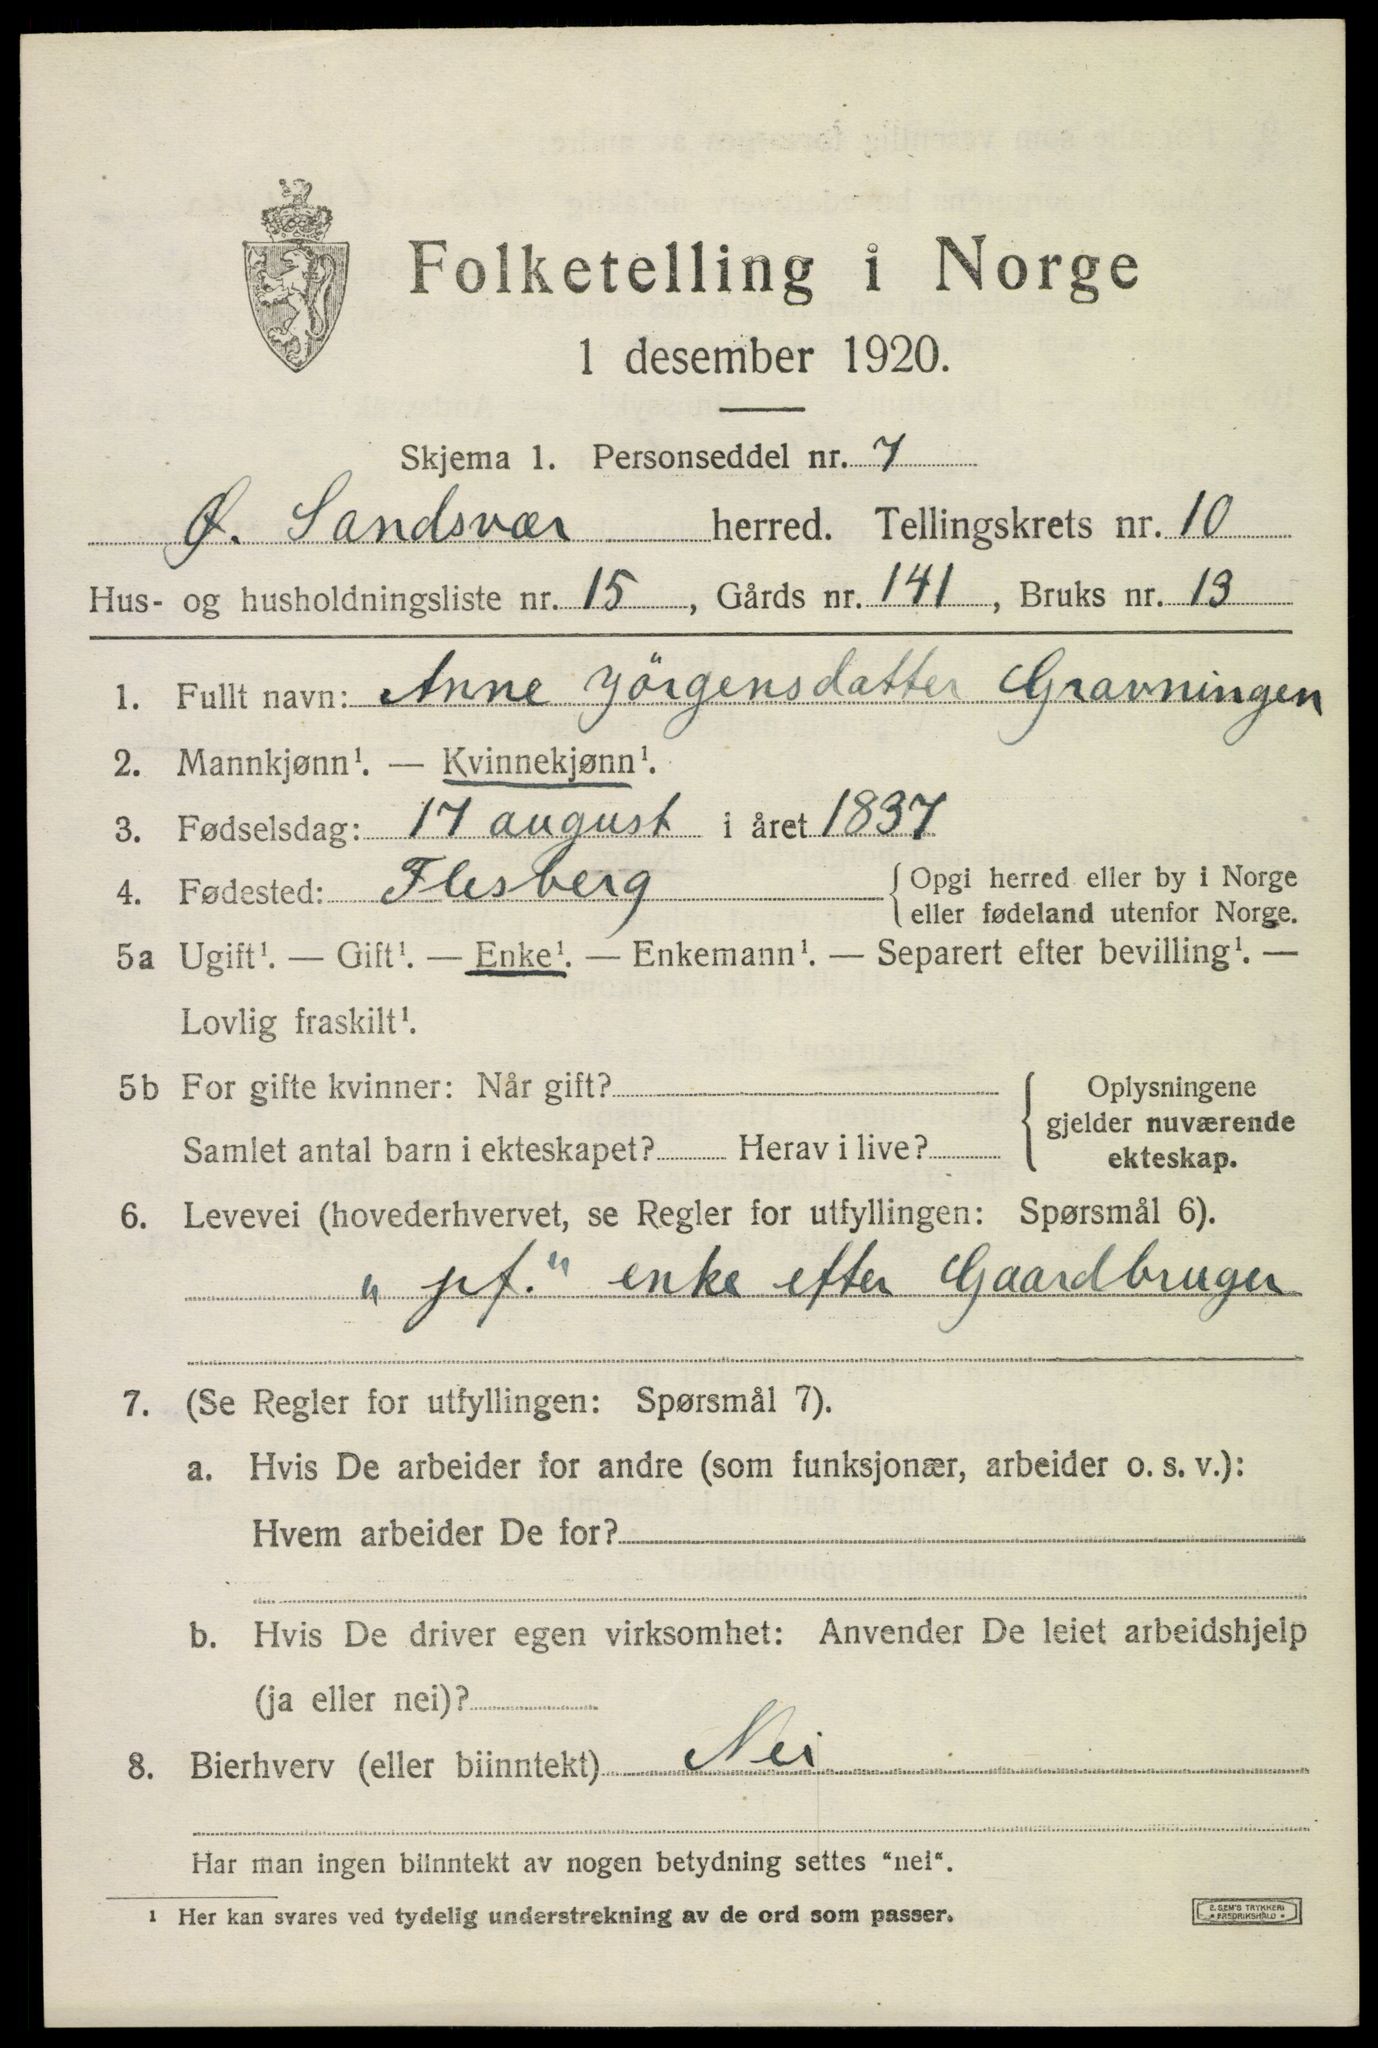 Folketelling i Norge
1 desember 1920.
Skjema 1. Personseddel nr. 7
Ø. Sandsvær herred. Tellingskrets nr. 10
Hus- og husholdningsliste nr. 15, Gårds nr. 141, Bruks nr. 13
1. Fullt navn: Anne Jörgensdatter Gravningen
2. Mannkjønn¹. — Kvinnekjønn¹.
3. Fødselsdag: 17 august i året 1837
4. Fødested: Flesberg { Opgi herred eller by i Norge
eller fødeland utenfor Norge.
5a Ugift¹. — Gift¹. — Enke¹. — Enkemann¹. — Separert efter bevilling¹. —
Lovlig fraskilt¹.
5b For gifte kvinner: Når gift?
Samlet antal barn i ekteskapet? Herav i live?
{ Oplysningene
gjelder nuværende
ekteskap.
6. Levevei (hovederhvervet, se Regler for utfyllingen: Spørsmål 6).
„ pf." enke efter Gaardbruger
7. (Se Regler for utfyllingen: Spørsmål 7).
a. Hvis De arbeider for andre (som funksjonær, arbeider o. s. v.):
Hvem arbeider De for?
b. Hvis De driver egen virksomhet: Anvender De leiet arbeidshjelp
(ja eller nei)?
8. Bierhverv (eller biinntekt) Nei
Har man ingen biinntekt av nogen betydning settes “nei“.
1 Her kan svares ved tydelig understrekning av de ord som passer.
E. SEM'S TRYKKERI
• FREDRIKSHALD •